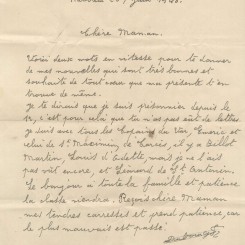 Juin 1940.
Chère Maman.
Voici deux mots en vitesse pour te donner
de mes nouvelles qui sont très bonnes et
souhaite de tout cœur que ma présente t'en
trouve de même.
Je te dirais que je suis prisonnier depuis le
c'est pour cela que tu n'as pas eût de lettres.
Je suis avec tous les copains du Var,
celui de St Maximin, de il y a
Martin, Louis d' mais je ne l'ait
pas vût encore, et de St
Le bonjour a toute la famille et patience
la classe viendra. Reçois chère Maman
mes tendres caresses et prend patience, car
le plus mauvais est passé.